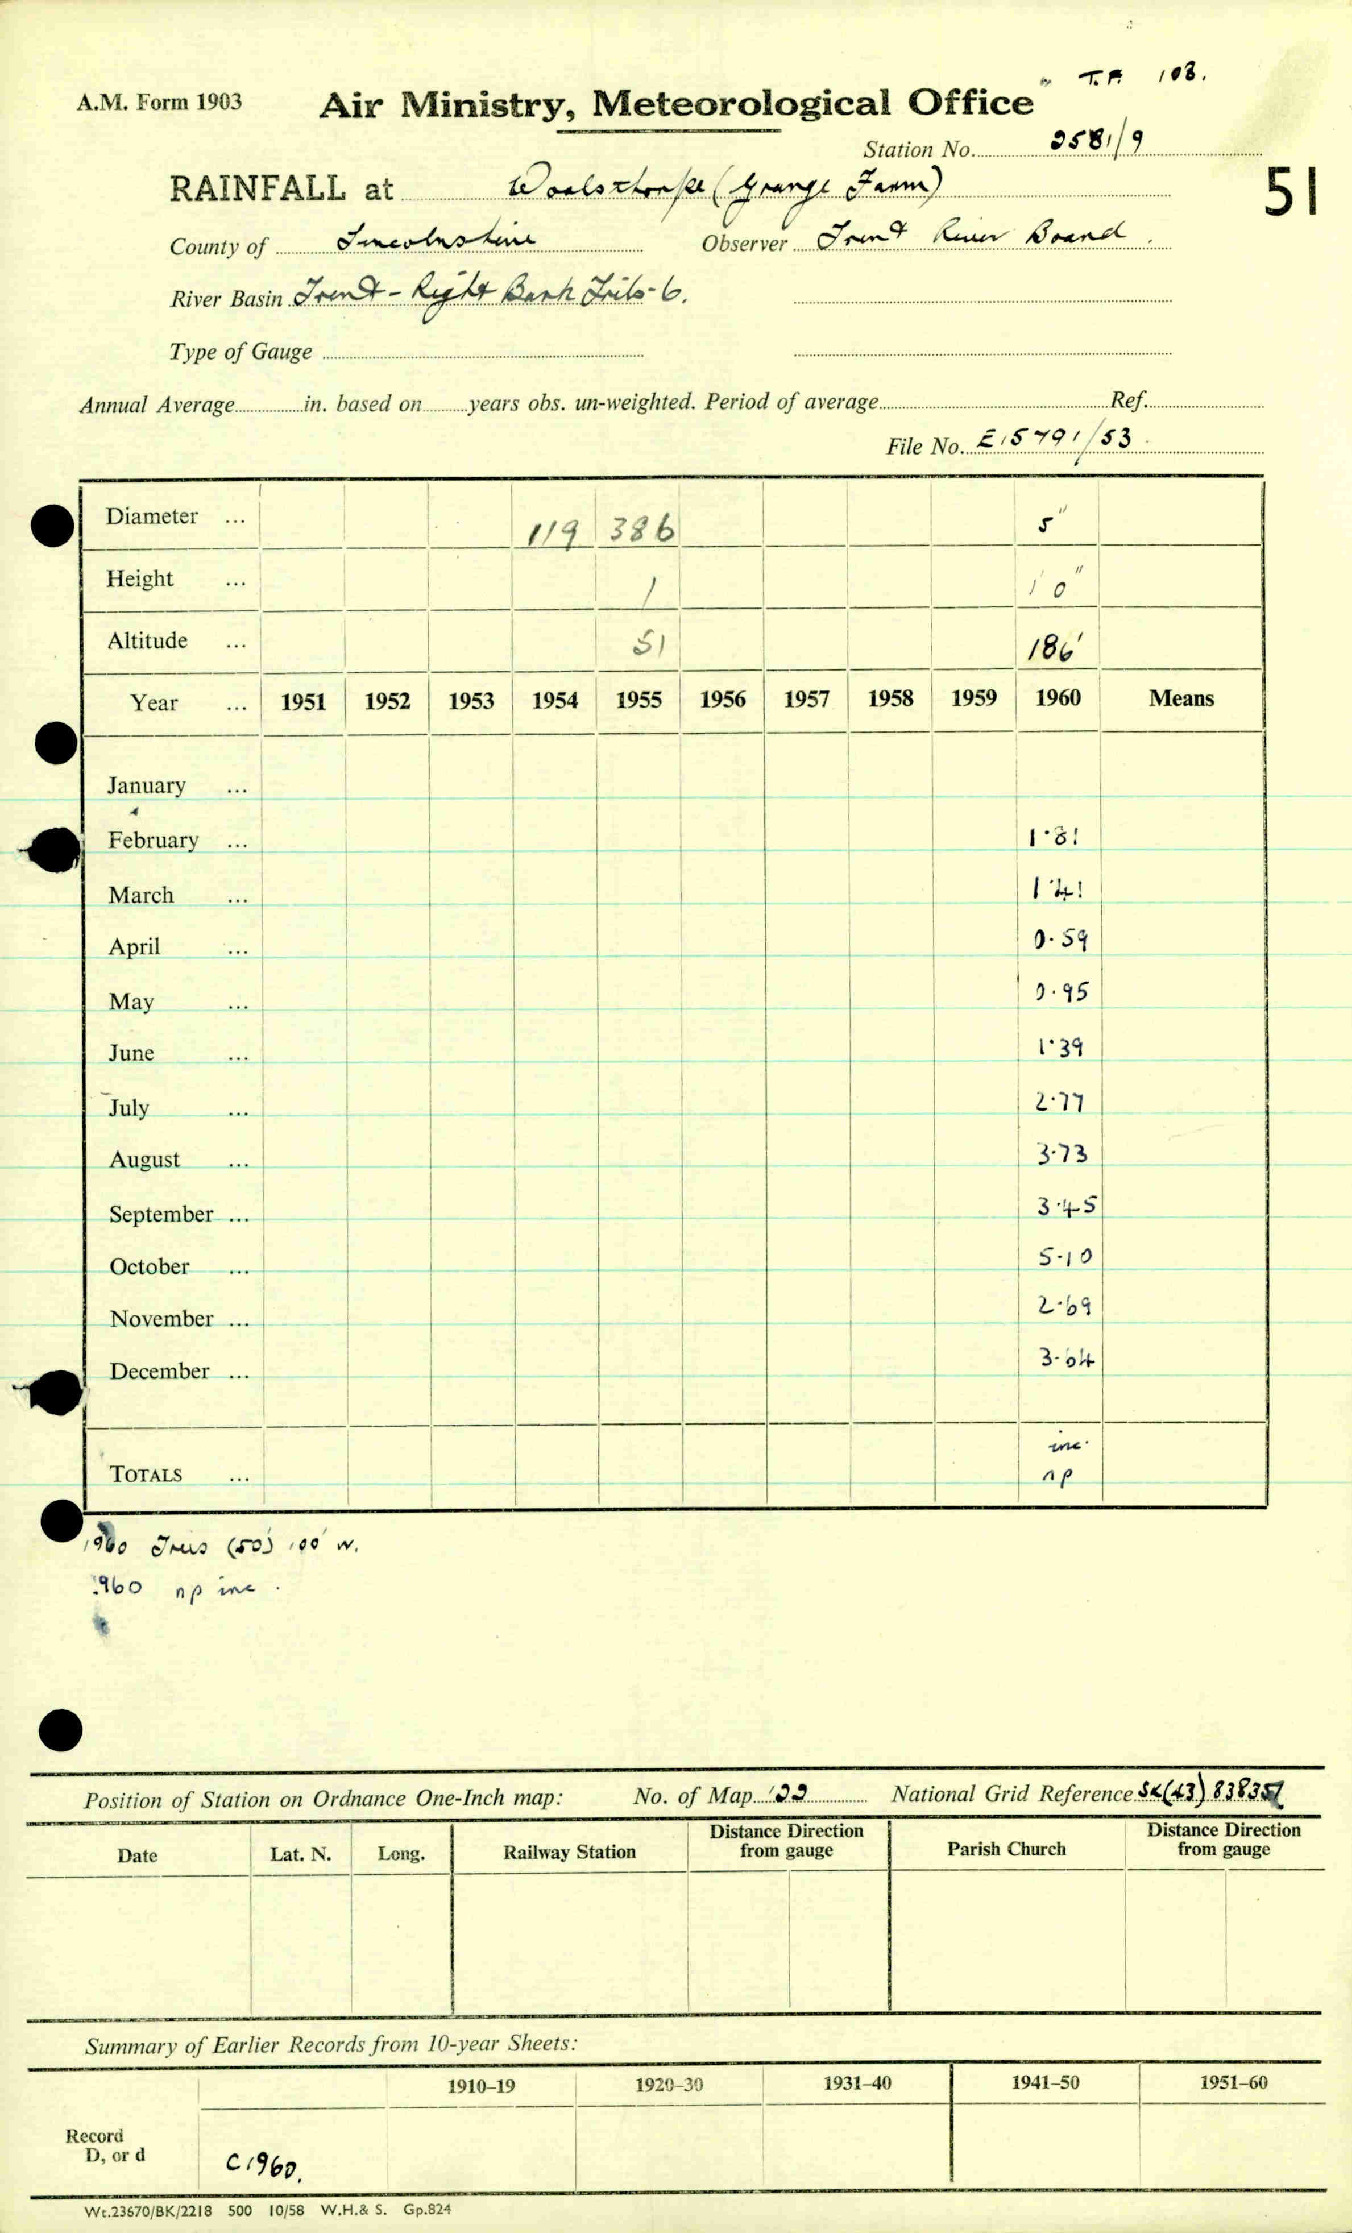 T.F. 108.
A.M. Form 1903 Air Ministry, Meteorological Office
Station No. 2581/9
51
RAINFALL at Woolsthorpe (Grange Farm)
County of Lincolnshire Observer Trent River Board
River Basin Trent - Right Bank Tribs - 6.
Type of Gauge
Annual Average in. based on years obs. un-weighted. Period of average Ref.
File No. E15791/53
Diameter ... 119 386 5"
Height ... 1 1' 0"
Altitude ... 51 186'
Year ... 1951 1952 1953 1954 1955 1956 1957 1958 1959 1960 Means
January ...
February ... 1.81
March ... 1.41
April ... 0.59
May ... 0.95
June ... 1.39
July ... 2.77
August ... 3.73
September ... 3.45
October ... 5.10
November ... 2.69
December ... 3.64
inc.
TOTALS ... np
1960 Trees (50') 100' W.
1960 np inc.
Position of Station on Ordnance One-Inch map: No. of Map 122 National Grid Reference SK(43)
Date Lat. N. Long. Railway Station Distance Direction from gauge Parish Church Distance Direction from gauge
Summary of Earlier Records from 10-year Sheets:
1910-19 1920-30 1931-40 1941-50 1951-60
Record
D, or d C1960.
Wt.23670/BK/2218 500 10/58 W.H.& S. Gp.824